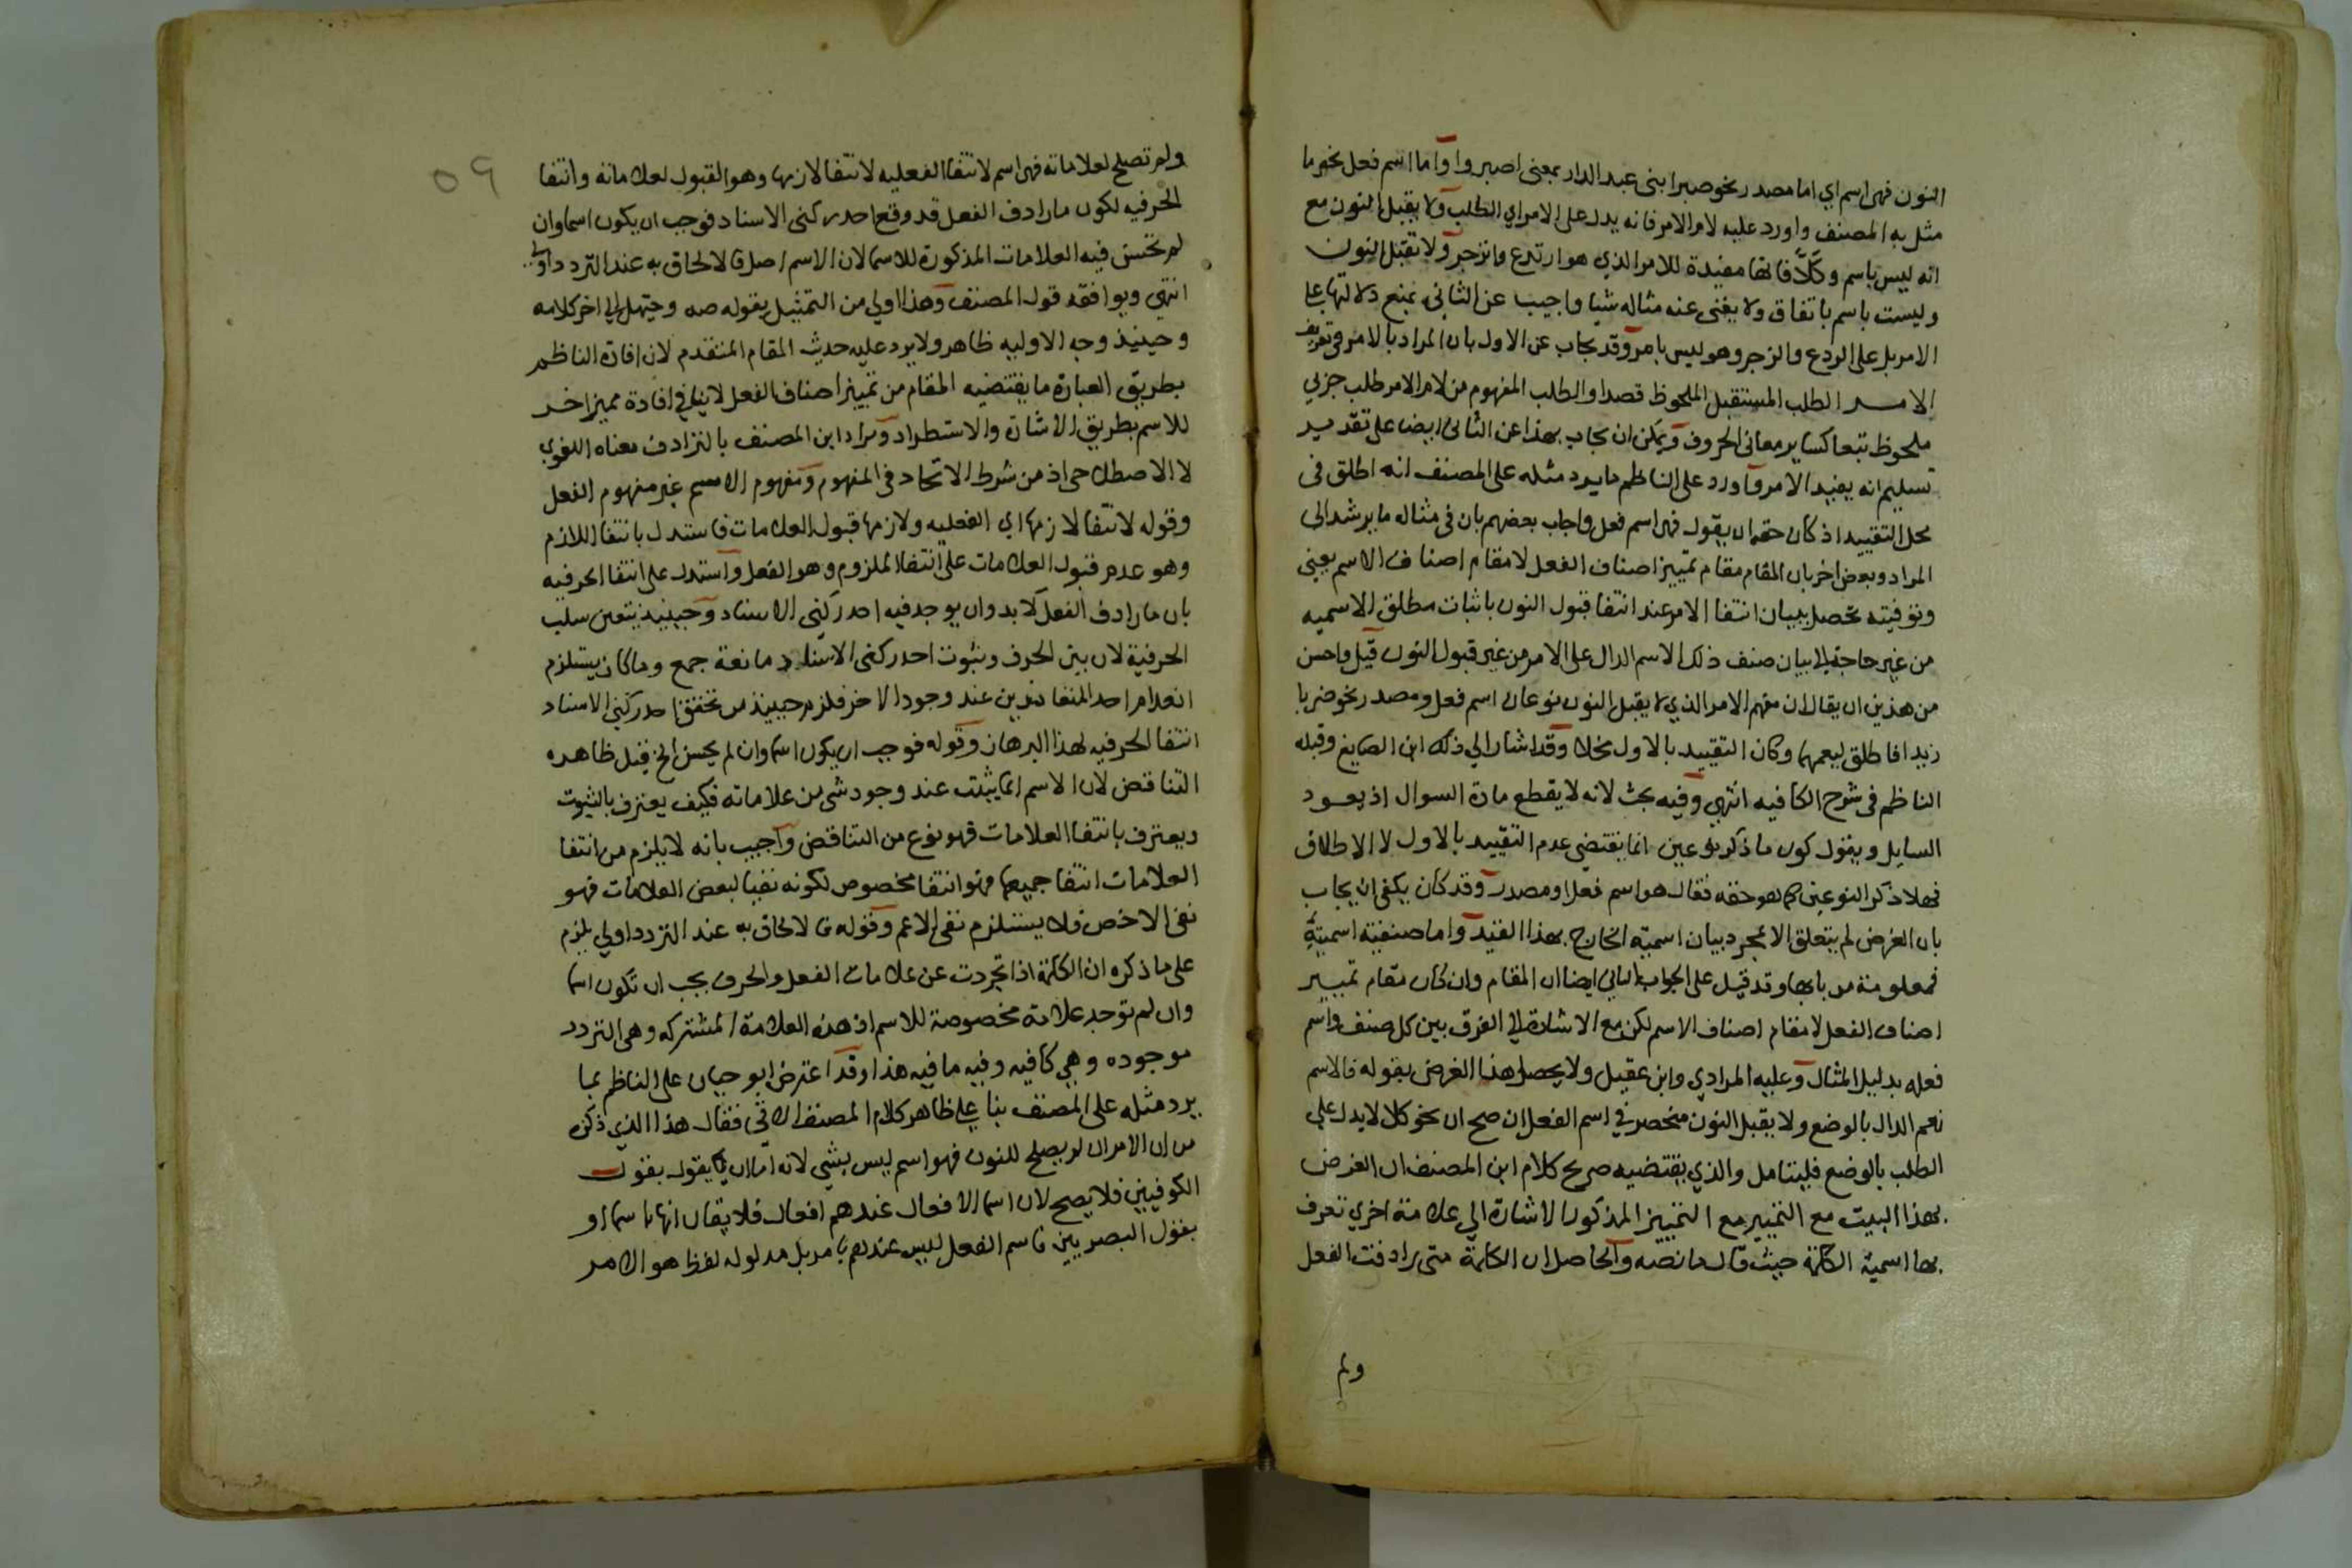 النون فهى اسم اي اما مصدر نحو صبرا بنى عبد الدار بمعنى اصبروا واما اسم فعل نحو ما
مثل به المصنف واورد عليه لام الامر فانه يدل على الامر اي الطلب ولا يقبل النون مع
انه ليس باسم وكلّا فانها مفيدة للامر الذي هو ارتدع وانزجر ولا تقبل النون
وليست باسم باتفاق ولا يغنى عنه مثاله شيا واجيب عن الثانى بمنع دلالتها على
الامر بل على الردع والزجر وهو ليس بامر وقد يجاب عن الاول بان المراد بالامر في تعريف
الامر الطلب المستقبل الملحوظ قصدا والطلب المفهوم من لام الامر طلب جزيي
ملحوظ تبعا كساير معانى الحروف ويمكن ان يجاب بهذا عن الثانى ايضا على تقدير
تسليم انه يفيد الامر واورد على الناظم ما يرد مثله على المصنف انه اطلق فى
محل التقييد اذ كان حقه ان يقول فهى اسم فعل واجاب بعضهم بان فى مثاله ما يرشد الى
المراد وبعض اخر بان المقام مقام تمييز اصناف الفعل لا مقام اصناف الاسم يعنى
وتوفيته تحصل ببيان انتفا الامر عند انتفا قبول النون باثبات مطلق الاسميه
من غير حاجة الى بيان صنف ذلك الاسم الدال على الامر من غير قبول النون قيل واحسن
من هذين ان يقال ان مفهم الامر الذي لا يقبل النون نوعان اسم فعل ومصدر نحو ضربا
زيدا فاطلق ليعمهما وكان التقييد بالاول مخلا وقد اشار الي ذلك ابن الصايغ وقبله
الناظم فى شرح الكافيه انتهى وفيه بحث لانه لا يقطع مادة السوال اذ يعود
السايل ويقول كون ما ذكر نوعين انما يقتضى عدم التقييد بالاول لا الاطلاق
فهلا ذكر النوعين كما هو حقه فقال هو اسم فعل او مصدر وقد كان يكفى ان يجاب
بان الغرض لم يتعلق الا بمجرد بيان اسمية الخارج بهذا القيد واما صنفية اسميته
فمعلومة من بابها وقد قيل على الجواب الثانى ايضا ان المقام وان كان مقام تمييز
اصناف الفعل لا مقام اصناف الاسم لكن مع الاشارة الي الفرق بين كل صنف واسم
فعله بدليل المثال وعليه المرادي وابن عقيل ولا يحصل هذا الغرض بقوله فالاسم
نعم الدال بالوضع ولا يقبل النون منحصر في اسم الفعل ان صح ان نحو كلا لا يدل على
الطلب بالوضع فليتامل والذي يقتضيه صريح كلام ابن المصنف ان الغرض
بهذا البيت مع التمييز مع التمييز المذكور الاشارة الي علامة اخري تعرف
بها اسمية الكلمة حيث قال ما نصه والحاصل ان الكلمة متى رادفت الفعل
ولم
٥٩
ولم تصلح لعلاماته فهى اسم لانتفا الفعليه لانتفا لازمها وهو القبول لعلاماته وانتفا
الحرفيه لكون ما رادف الفعل قد وقع احد ركنى الاسناد فوجب ان يكون اسما وان
لم تحسن فيه العلامات المذكورة للاسما لان الاسم اصل فالالحاق به عند التردد اولي
انتهى ويوافقه قول المصنف وهذا اولي من التمثيل بقوله صه وحيهل الي اخر كلامه
وحينيذ وجه الاوليه ظاهر ولا يرد عليه حديث المقام المتقدم لان افادة الناظم
بطريق العبارة ما يقتضيه المقام من تمييز اصناف الفعل لا ينافي افادة مميز اخر
للاسم بطريق الاشارة والاستطراد ومراد ابن المصنف بالترادف معناه اللغوي
لا الاصطلاحى اذ من شرط الاتحاد فى المفهوم ومفهوم الاسم غير مفهوم الفعل
وقوله لانتفا لازمها اي الفعليه ولازمها قبول العلامات فاستدل بانتفا اللازم
وهو عدم قبول العلامات على انتفا الملزوم وهو الفعل واستدل على انتفا الحرفيه
بان ما رادف الفعل لا بد وان يوجد فيه احد ركنى الاسناد وحينيذ يتعين سلب
الحرفية لان بين الحرف وثبوت احد ركنى الاسناد مانعة جمع وما كان يستلزم
انعدام احد المتعاندين عند وجود الاخر فلزم حينيذ من تحقق احد ركنى الاسناد
انتفا الحرفيه لهذا البرهان وقوله فوجب ان يكون اسما وان لم يحسن الخ قيل ظاهره
التناقض لان الاسم انما يثبت عند وجود شى من علاماته فكيف يعترف بالثبوت
ويعترف بانتفا العلامات فهو نوع من التناقض واجيب بانه لا يلزم من انتفا
العلامات انتفا جميعها فهو انتفا مخصوص لكونه نفيا لبعض العلامات فهو
نفى الاخص فلا يستلزم نفى الاعم وقوله فالالحاق به عند التردد اولي يلزم
على ما ذكره ان الكلمة اذا تجردت عن علامات الفعل والحرف يجب ان تكون اسما
وان لم توجد علامة مخصوصة للاسم اذ هذه العلامة المشتركه وهى التردد
موجوده وهي كافيه وفيه ما فيه هذا وقد اعترض ابو حيان على الناظم بما
يرد مثله على المصنف بنا على ظاهر كلام المصنف الاتى فقال هذا الذي ذكره
من ان الامر ان لم يصلح للنون فهو اسم ليس بشي لانه اما ان يقول بقول
الكوفيين فلا يصح لان اسما الافعال عندهم افعال فلا يقال انها اسما او
بقول البصريين فاسم الفعل ليس عندهم بامر بل مدلوله لفظ هو الامر